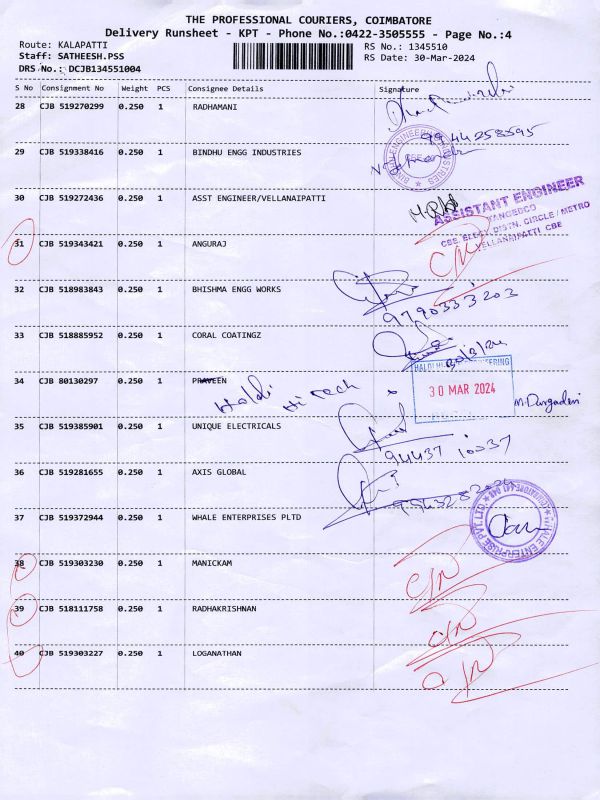 THE PROFESSIONAL COURIERS, COIMBATORE
Delivery Runsheet - KPT - Phone No.:0422-3505555 - Page No.:4
Route: KALAPATTI
RS No.: 1345510
Staff: SATHEESH.PSS
RS Date: 30-Mar-2024
DRS No.: DCJB134551004
S No Consignment No Weight PCS Consignee Details Signature
28 CJB 519270299 0.250 1 RADHAMANI
9944258595
29 CJB 519338416 0.250 1 BINDHU ENGG INDUSTRIES
30 CJB 519272436 0.250 1 ASST ENGINEER/VELLANAIPATTI
ASSISTANT ENGINEER
TANGEDCO
CBE. ELECY. DISTN. CIRCLE / METRO
VELLANAIPATTI CBE
31 CJB 519343421 0.250 1 ANGURAJ
32 CJB 518983843 0.250 1 BHISHMA ENGG WORKS
9790333203
33 CJB 518885952 0.250 1 CORAL COATINGZ
34 CJB 80130297 0.250 1 PRAVEEN
Haldi Hi Tech
30 MAR 2024
M. Durgadevi
35 CJB 519385901 0.250 1 UNIQUE ELECTRICALS
94437 10037
36 CJB 519281655 0.250 1 AXIS GLOBAL
37 CJB 519372944 0.250 1 WHALE ENTERPRISES PLTD
WHALE ENTERPRISE PVT.LTD
38 CJB 519303230 0.250 1 MANICKAM
39 CJB 518111758 0.250 1 RADHAKRISHNAN
40 CJB 519303227 0.250 1 LOGANATHAN